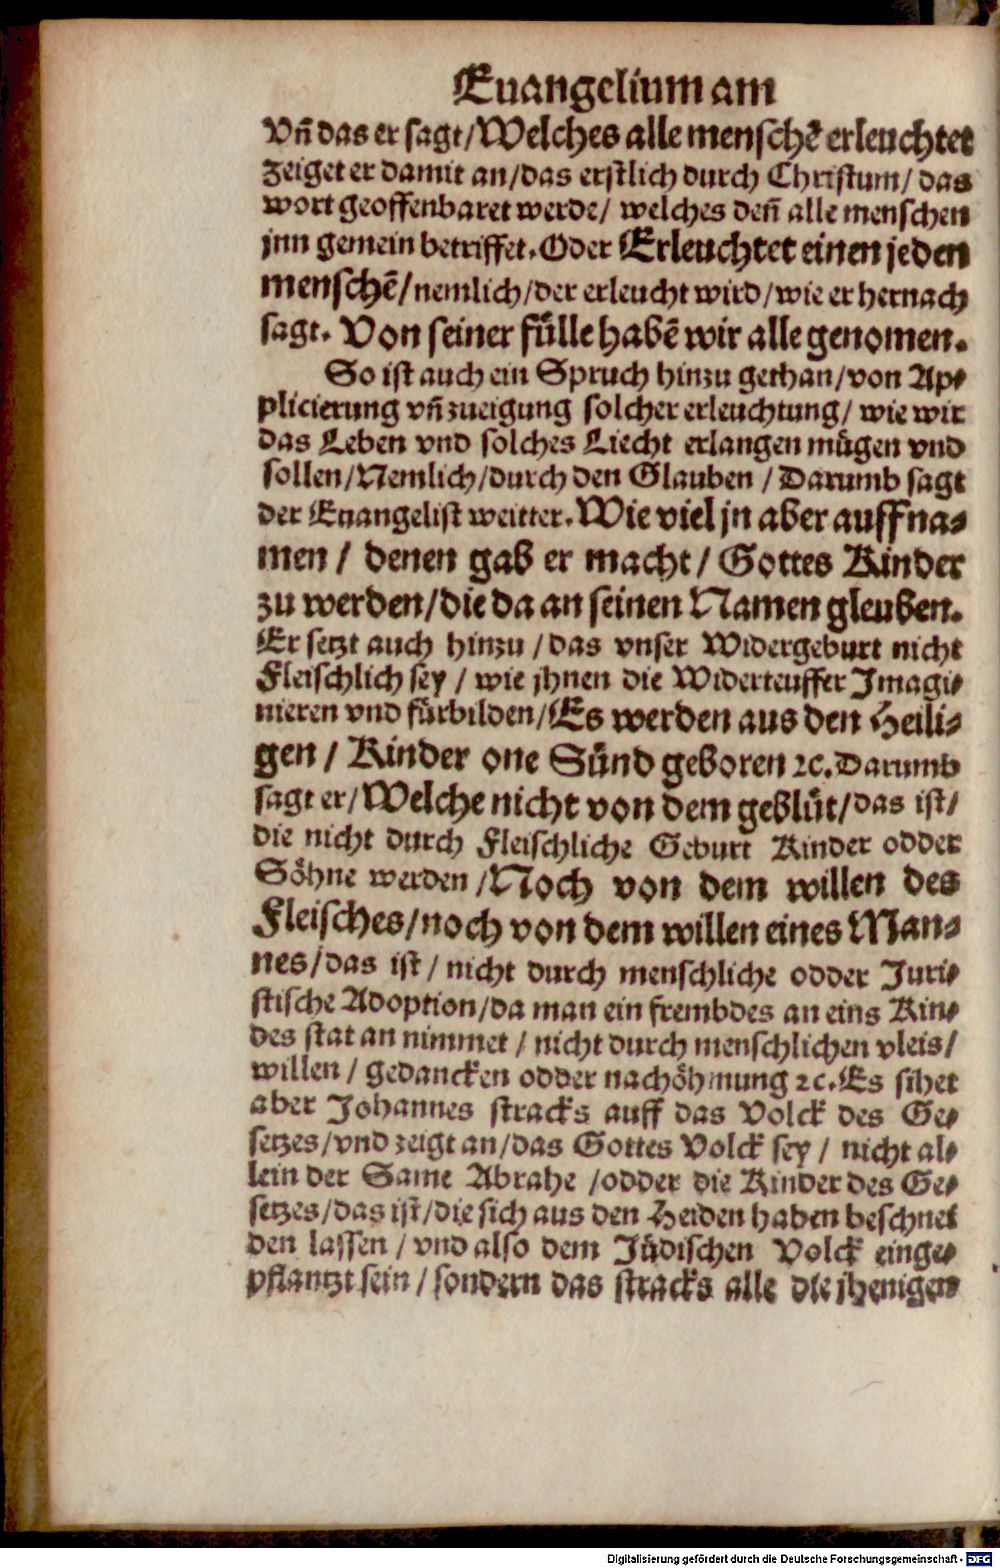 Euangelium am
Vñ das er sagt/Welches alle menschē erleuchtet
zeiget er damit an/das erstlich durch Christum/ das
wort geoffenbaret werde/ welches deñ alle menschen
jnn gemein betriffet. Oder Erleuchtet einen jeden
menschē/nemlich/der erleucht wird/wie er hernach
sagt. Von seiner fülle habē wir alle genomen.
So ist auch ein Spruch hinzu gethan/von Ap⸗
plicierung vñ zueigung solcher erleuchtung/ wie wir
das Leben vnd solches Liecht erlangen mügen vnd
sollen/Nemlich/durch den Glauben / Darumb sagt
der Euangelist weitter. Wie viel jn aber auffna⸗
men / denen gab er macht/ Gottes Kinder
zu werden/die da an seinen Namen gleuben.
Er setzt auch hinzu /das vnser Widergeburt nicht
Fleischlich sey / wie jhnen die Widerteuffer Imagi⸗
nieren vnd fürbilden/Es werden aus den Heili⸗
gen / Kinder one Sünd geboren ꝛc. Darumb
sagt er/Welche nicht von dem geblüt/das ist/
die nicht durch Fleischliche Geburt Kinder odder
Söhne werden /Noch von dem willen des
Fleisches/noch von dem willen eines Man⸗
nes/das ist / nicht durch menschliche odder Juri⸗
stische Adoption/da man ein frembdes an eins Kin⸗
des stat an nimmet / nicht durch menschlichen vleis/
willen / gedancken odder nachöhmung ꝛc. Es sihet
aber Johannes stracks auff das Volck des Ge⸗
setzes/vnd zeigt an/das Gottes Volck sey / nicht al⸗
lein der Same Abrahe /odder die Kinder des Ge⸗
setzes/das ist/die sich aus den Heiden haben beschnei
den lassen / vnd also dem Jüdischen Volck einge⸗
pflantzt sein / sondern das stracks alle die jhenigen
Digitalisierung gefördert durch die Deutsche Forschungsgemeinschaft - DFG